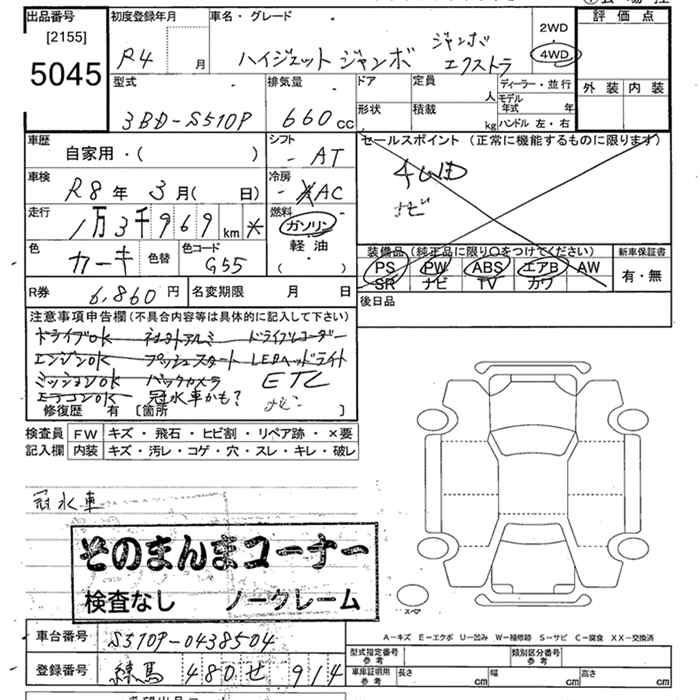 出品番号 初度登録年月 車名・グレード 評価点
[2155] R4 月 ハイジェット ジャンボ ジャンボ エクストラ 2WD 4WD
5045 型式 排気量 ドア 定員 人 ディーラー・並行 外装 内装
3BD-S510P 660 cc 形状 積載 kg モデル年式 年
ハンドル 左・右
車歴 シフト セールスポイント (正常に機能するものに限ります)
自家用・( ) AT 4WD
車検 冷房 ナビ
R8 年 3 月( 日) AC
走行 燃料
1万3千969 km ガソリン
色 色替 色コード 軽油 装備品 (純正品に限り○をつけてください) 新車保証書
カーキ G55 (・) PS PW ABS エアB AW 有・無
SR ナビ TV カワ
R券 6,860 円 名変期限 月 日 後日品
注意事項申告欄(不具合内容等は具体的に記入して下さい)
ドライブOK 社外アルミ ドライブレコーダー
エンジンOK プッシュスタート LEDヘッドライト
ミッションOK バックカメラ ETC
エアコンOK 冠水車かも? ナビ
修復歴 有 [箇所 ]
検査員 FW キズ・飛石・ヒビ割・リペア跡・×要
記入欄 内装 キズ・汚レ・コゲ・穴・スレ・キレ・破レ
冠水車
そのまんまコーナー
検査なし ノークレーム
スペア
A−キズ E−エクボ U−凹み W−補修跡 S−サビ C−腐食 XX−交換済
車台番号 S510P-0438504 型式指定番号 参考 類別区分番号 参考
登録番号 練馬 480 せ 914 車庫証明用 参考 長さ cm 幅 cm 高さ cm